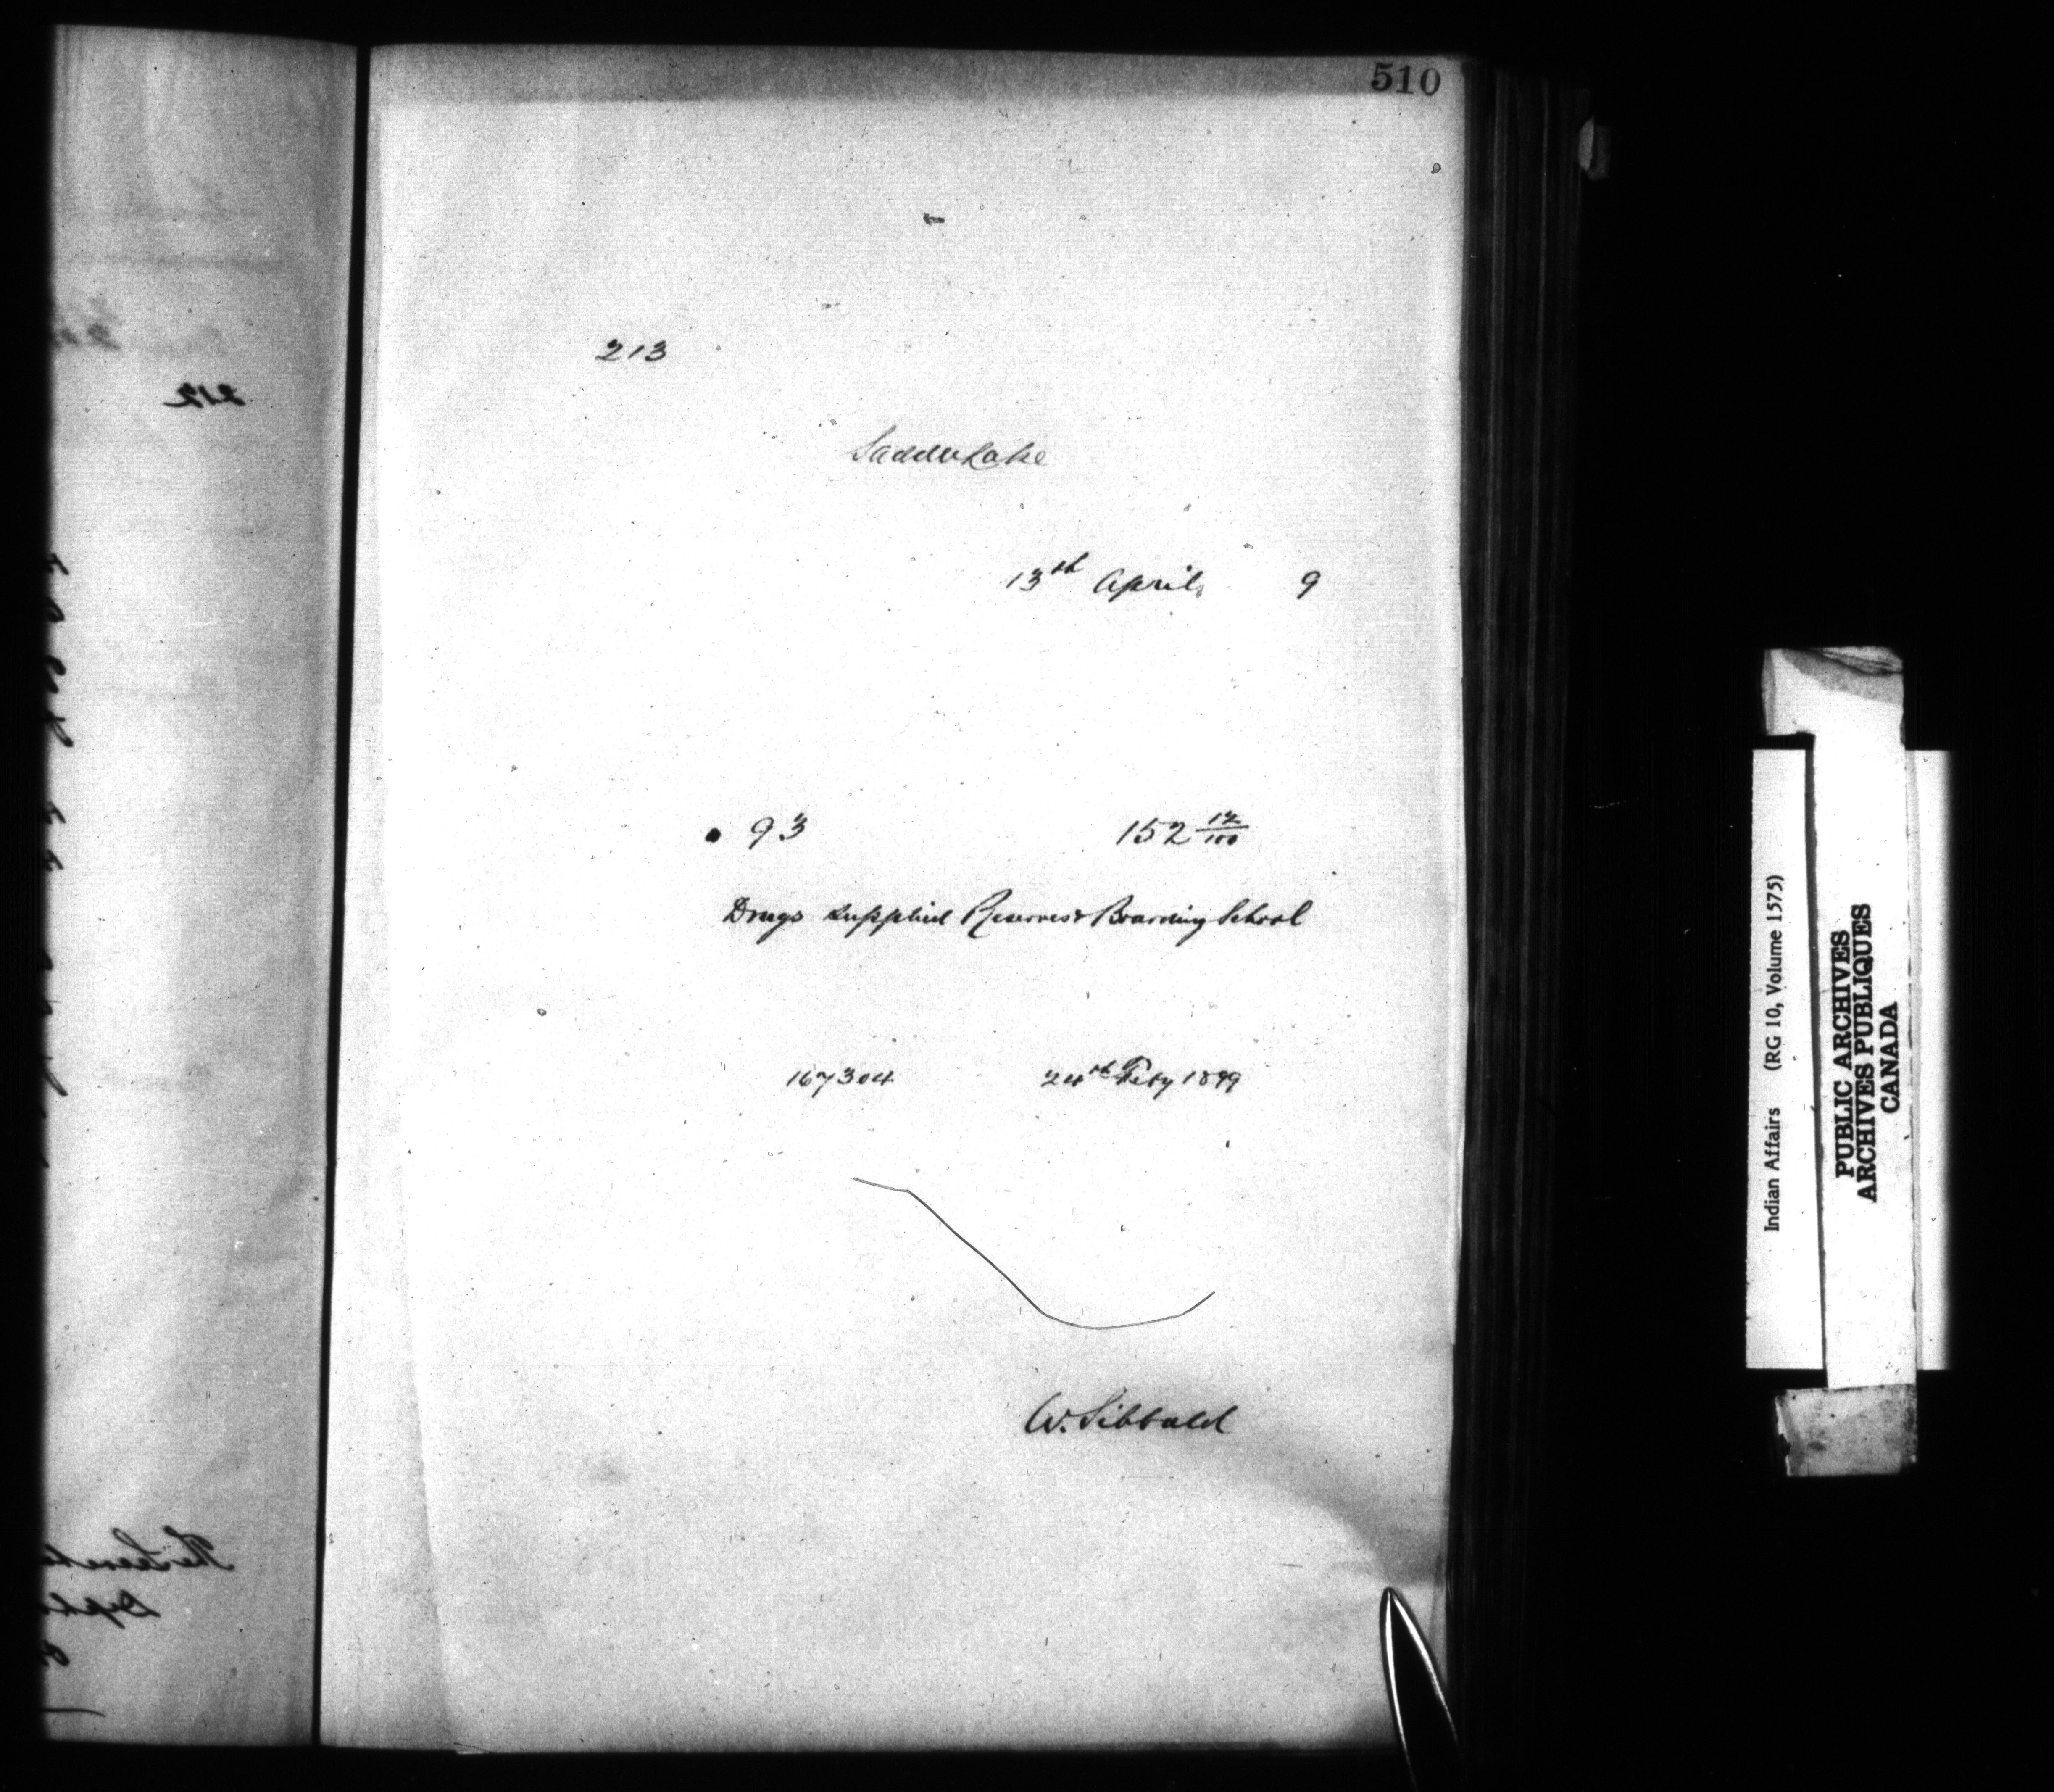 510
213
Saddle Lake
13th April 9
93 152 12/100
Drugs supplied Reserves & Boarding School
167304 24th Feby 1899
W. Sibbald
212
Indian Affairs (RG 10, Volume 1575)
PUBLIC ARCHIVES
ARCHIVES PUBLIQUES
CANADA